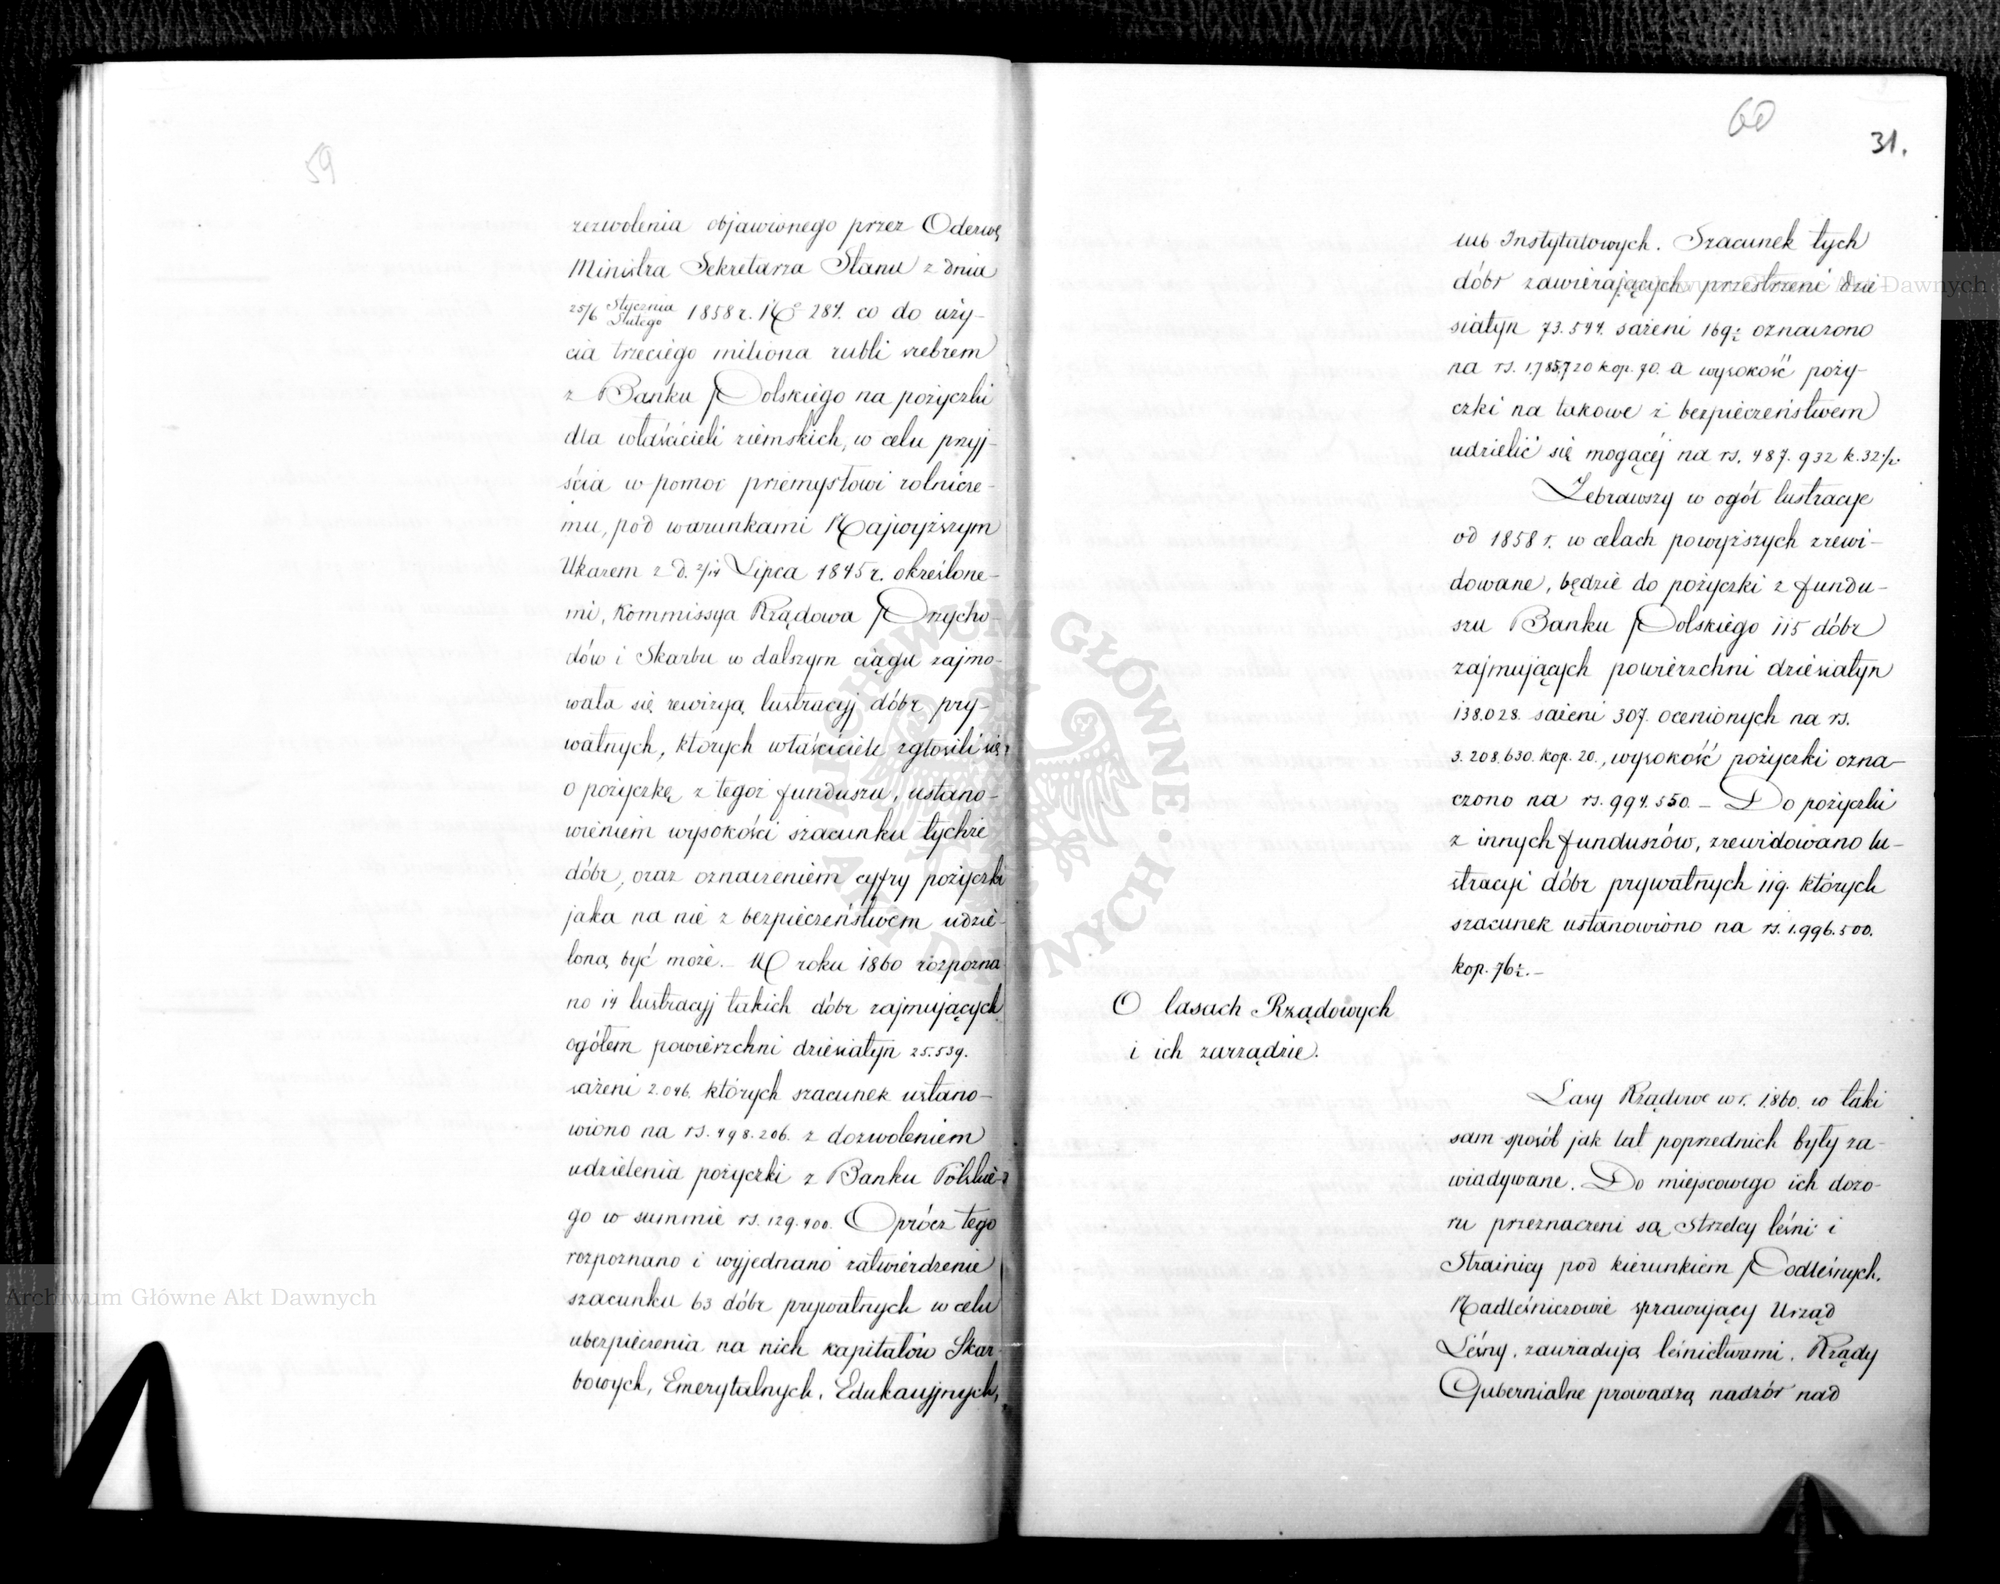 59
zezwolenia objawionego przez Odezwę
Ministra Sekretarza Stanu z dnia
25/6 Stycznia/Lutego 1858 r. No 284. co do uży-
cia trzeciego miliona rubli srebrem
z Banku Polskiego na pożyczki
dla właścicieli ziemskich, w celu przyj-
ścia w pomoc przemysłowi rolnicze-
mu, pod warunkami Najwyższym
Ukazem z d. 2/14 Lipca 1845 r. określone-
mi, Kommissya Rządowa Przycho-
dów i Skarbu w dalszym ciągu zajmo-
wała się rewizyą lustracyj dóbr pry-
watnych, których właściciele zgłosili się
o pożyczkę z tegoż funduszu, ustano-
wieniem wysokości szacunku tychże
dóbr, oraz oznaczeniem cyfry pożyczki
jaka na nie z bezpieczeństwem udzie-
loną być może. – W roku 1860 rozpozna
no 14 lustracyj takich dóbr zajmujących
ogółem powierzchni dziesiatyn 25.539.
sażeni 2.046. których szacunek ustano-
wiono na rs. 498.206. z dozwoleniem
udzielenia pożyczki z Banku Polskie-
go w summie rs. 129.400. Oprócz tego
rozpoznano i wyjednano zatwierdzenie
szacunku 63 dóbr prywatnych w celu
ubezpieczenia na nich kapitałów Skar-
bowych, Emerytalnych, Edukacyjnych,
60
31.
lub Instytutowych. Szacunek tych
dóbr zawierających przestrzeni dzie
siatyn 73.544. sażeni 169½ oznaczono
na rs. 1.785.720 kop. 70. a wysokość poży-
czki na takowe z bezpieczeństwem
udzielić się mogącéj na rs. 487.932 k. 32½.
Zebrawszy w ogół lustracye
od 1858 r. w celach powyższych zrewi-
dowane, będzie do pożyczki z fundu-
szu Banku Polskiego 115 dóbr
zajmujących powierzchni dziesiatyn
138.028. sażeni 307. ocenionych na rs.
3.208.630. kop. 20., wysokość pożyczki ozna-
czono na rs. 994.550. – Do pożyczki
z innych funduszów, zrewidowano lu-
stracyi dóbr prywatnych 119. których
szacunek ustanowiono na rs. 1.996.500.
kop. 76½. –
O lasach Rządowych
i ich zarządzie.
Lasy Rządowe w r. 1860. w taki
sam sposób jak lat poprzednich były za-
wiadywane. Do miejscowego ich dozo-
ru przeznaczeni są Strzelcy leśni i
Strażnicy pod kierunkiem Podleśnych.
Nadleśniczowie sprawujący Urząd
Leśny, zawiadują leśnictwami. Rządy
Gubernialne prowadzą nadzór nad
Archiwum Główne Akt Dawnych
Archiwum Główne Akt Dawnych
ARCHIWUM GŁÓWNE AKT DAWNYCH